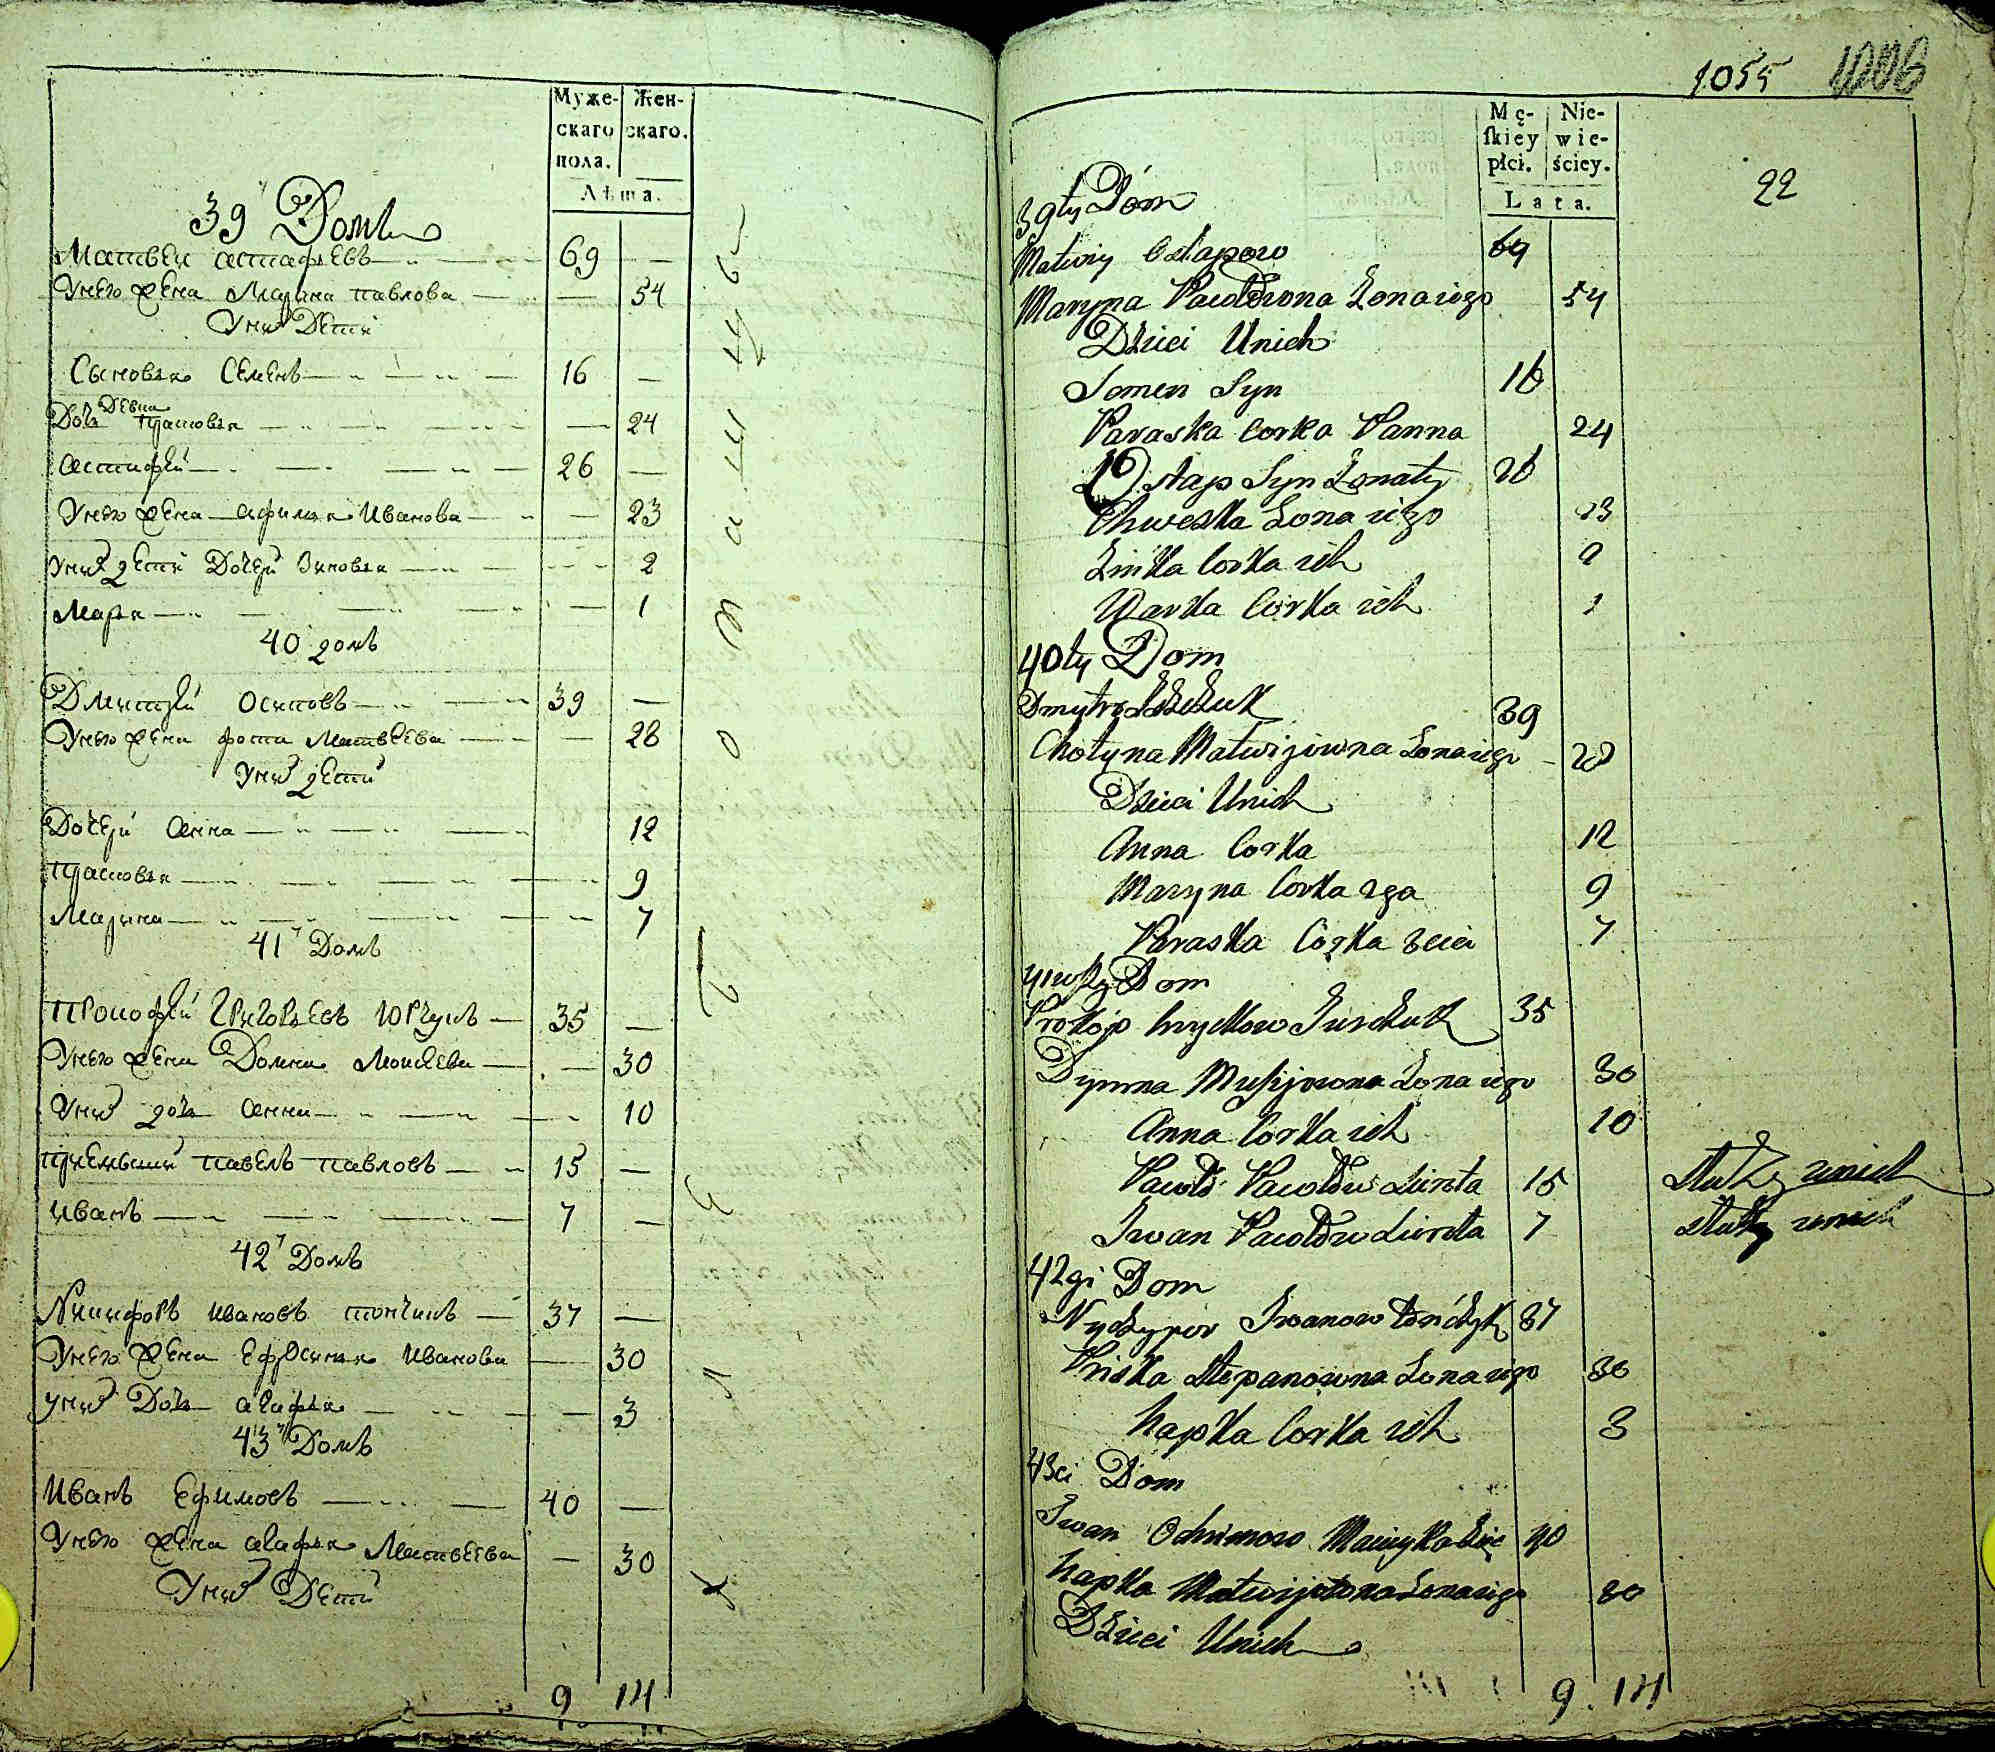 Муже-
скаго
пола.
Жен-
скаго.
Лѣта.
39 Домъ
Матвеи астафьевъ 69 —
Унего жена Марина павлова — 54
Уних Дети
Сыновья Семенъ 16 —
Дочь Девка прасковья — 24
астафей 26 —
Унего жена афимья Иванова — 23
Уних дети Дочери Зиновья — 2
Марья — 1
40 домъ
Дмитрей осиповъ 39 —
Унего жена фотина Матвеева — 28
Уних дети
Дочери анна 12
прасковья 9
Марина 7
41 Домъ
прокофей Григорьевъ Юрчукъ 35 —
Унего жена Домна Моисеева — 30
Уних дочь анна — 10
приемыши павелъ павловъ 15 —
иванъ 7 —
42 Домъ
Никифоръ ивановъ 37 —
Унего жена ефросинья иванова — 30
уних Дочь агафья — 3
43 Домъ
Иванъ ефимовъ 40 —
Унего жена агафья Матвеева — 30
Уних Дети
9 14
1055
22
Mę-
skiey
płci.
Nie-
wie-
ściey.
Lata.
39ty Dóm
Matwiy Ostapow 69
Maryna Pawłowna Żona iego 54
Dzieci Unich
Semen Syn 16
Paraska Corka Panna 24
Ostap Syn Żonaty 26
Chweska Żona iego 23
Zinka Corka ich 2
Marka Corka ich 1
40ty Dom
Dmytro 39
Chotyna Matwijowna Żona iego 28
Dzieci Unich
Anna Corka 12
Maryna Corka 2ga 9
Paraska Corka 3cia 7
41wszy Dom
Prokop hryckow Jurczuk 35
Dymna Musijowna Żona iego 30
Anna Corka ich 10
Pawło Pawłow Sirota 15 służy unich
Iwan Pawłow Sirota 7 służy unich
42gi Dom
Nyczypor Iwanow 37
Priska Stepanowna Żona iego 30
hapka Corka ich 3
43ci Dom
Iwan Ochrimow 40
hapka Matwijowna Żona iego 30
Dzieci Unich
9 . 14